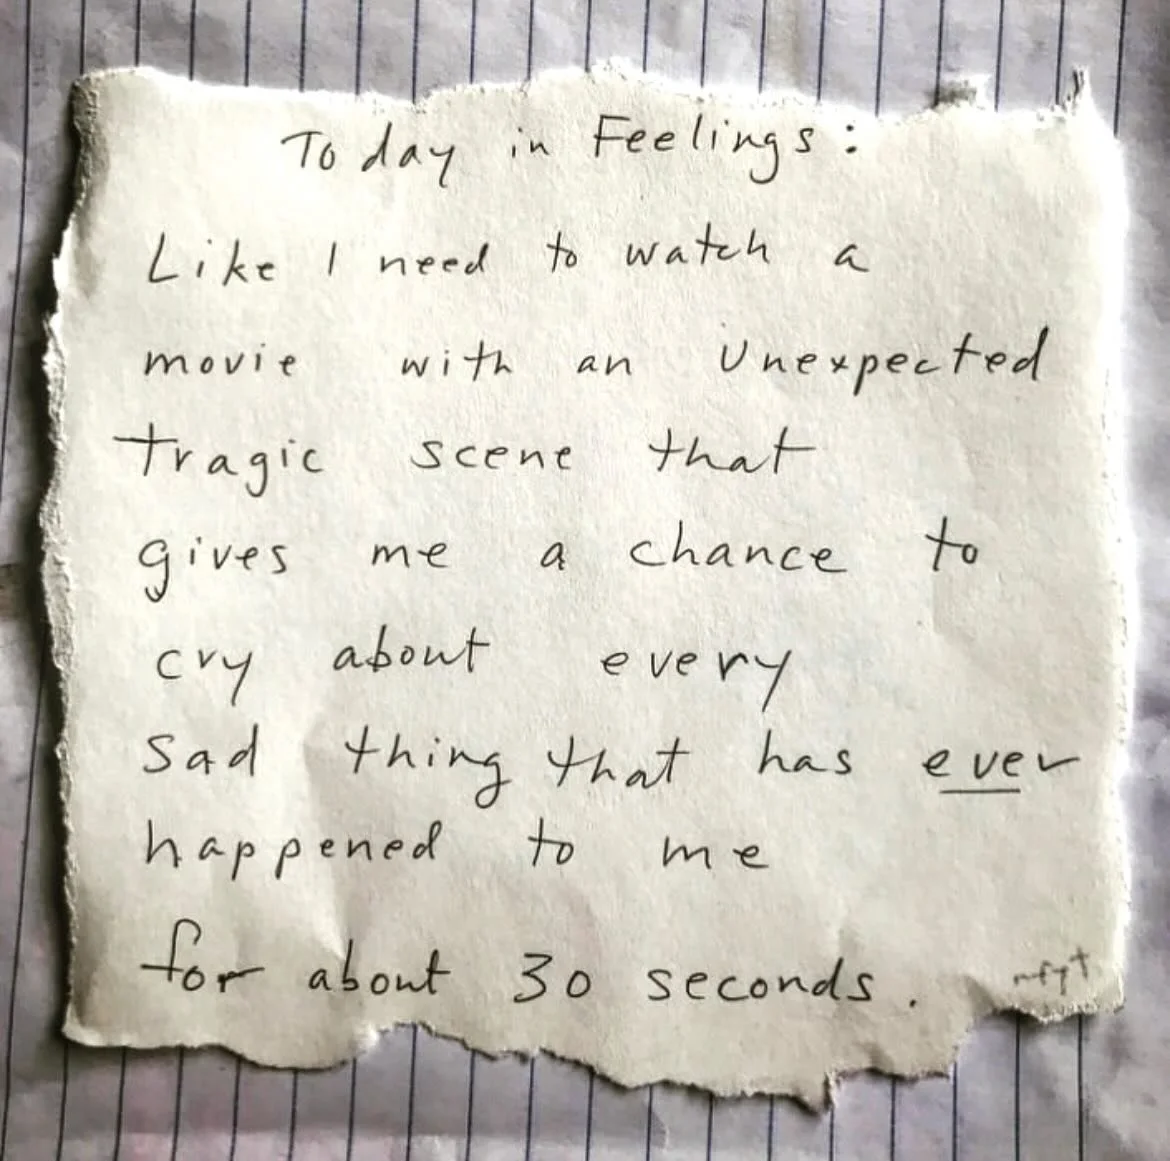 Today in Feelings:
Like I need to watch a
movie with an Unexpected
tragic scene that
gives me a chance to
cry about every
sad thing that has ever
happened to me
for about 30 seconds.
mfyt